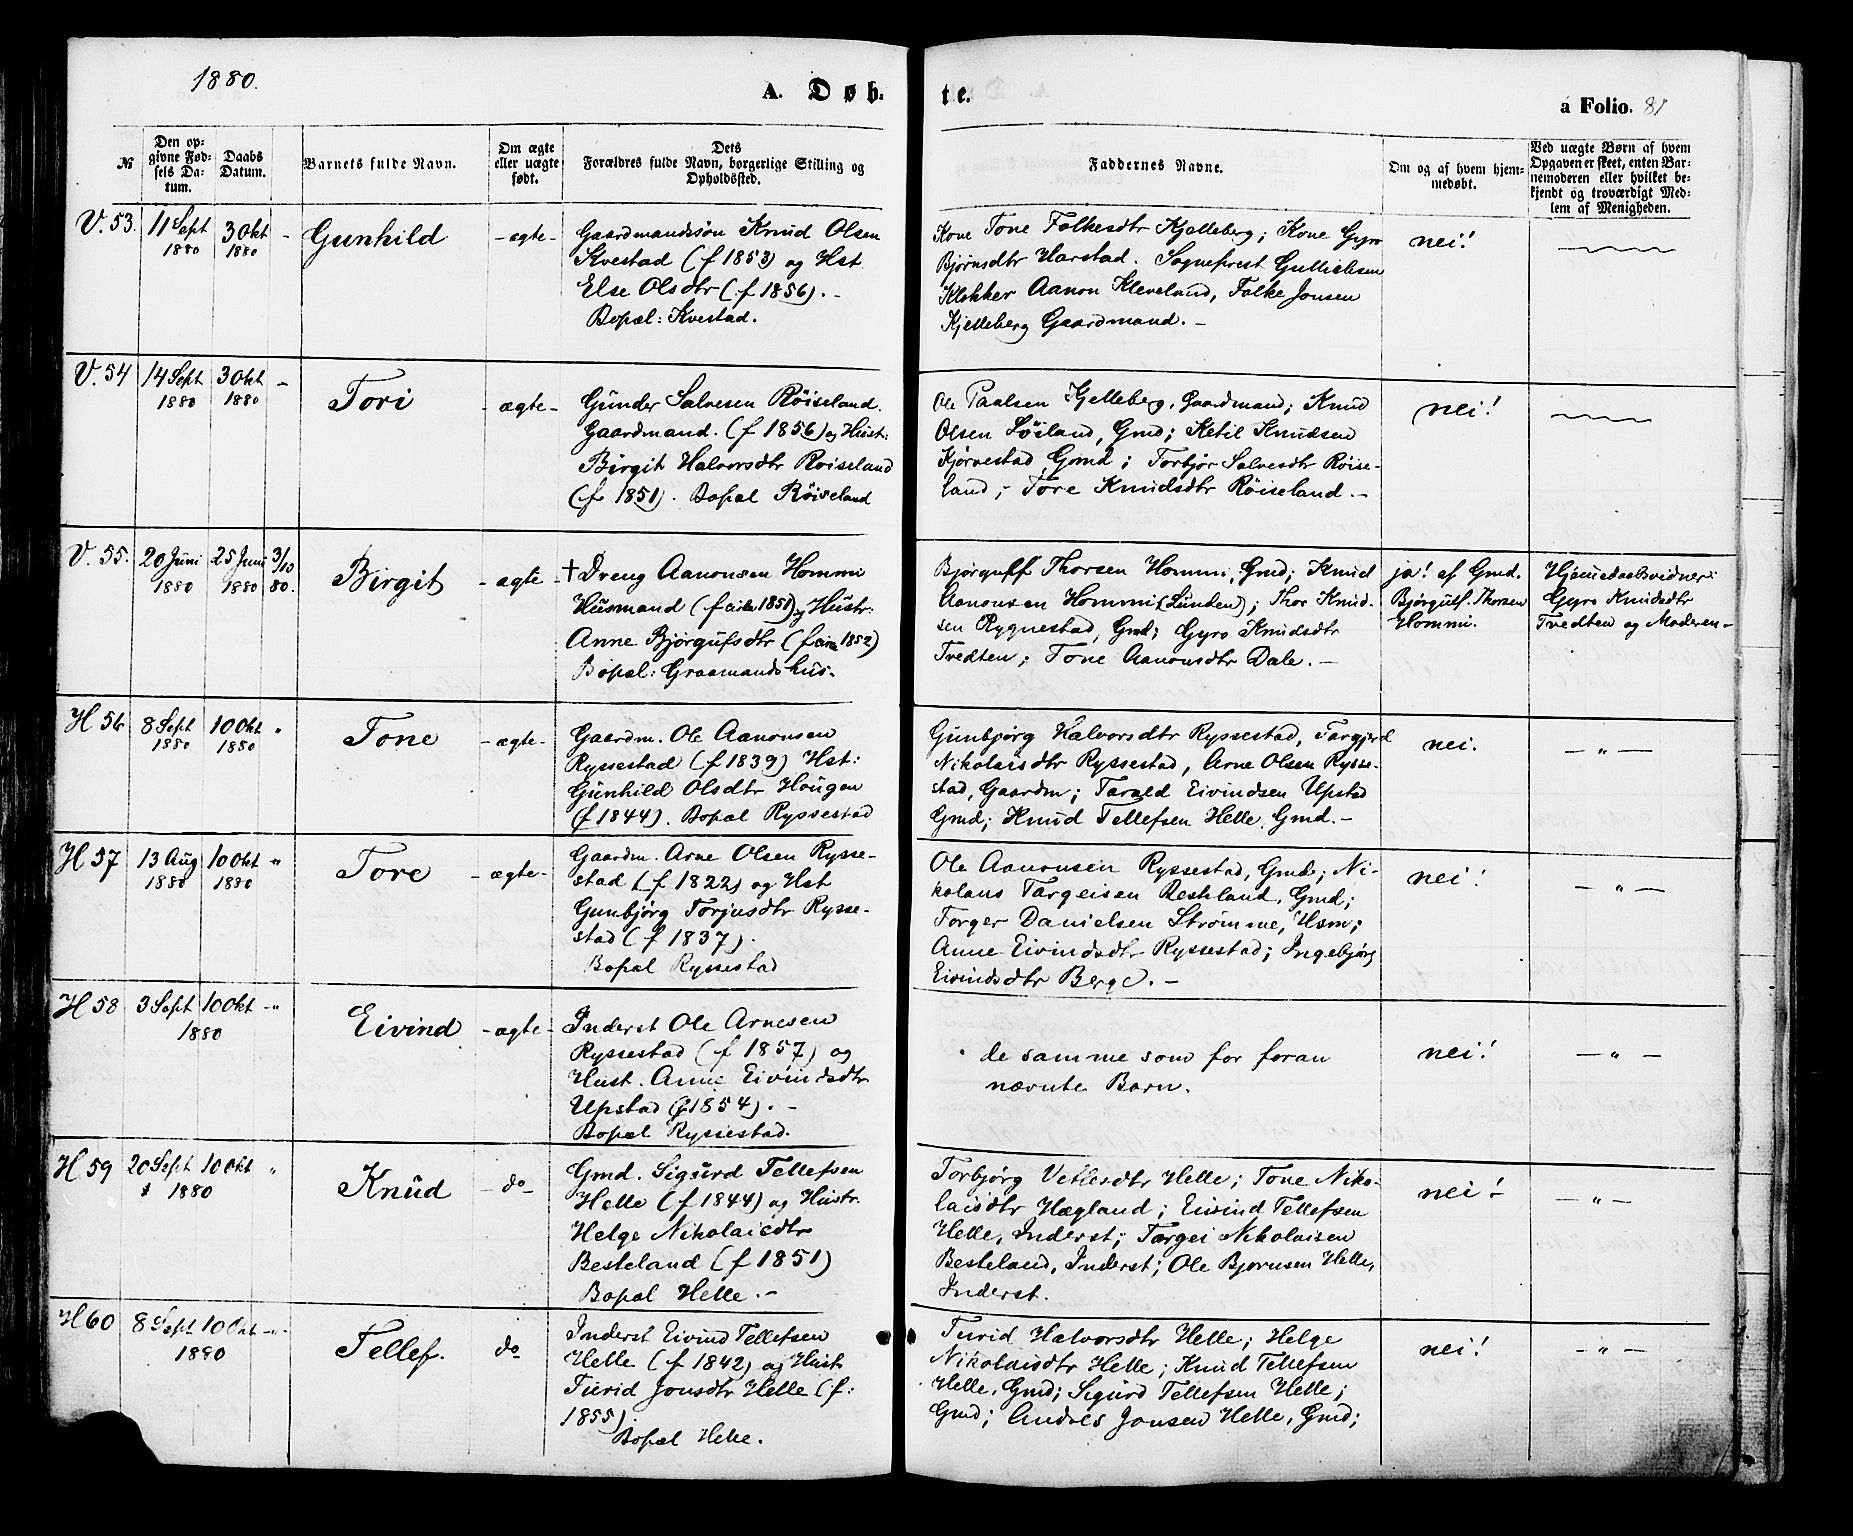 1880.
A. Døb-
te.
à Folio. 81
№
Den op-
givne Fød-
sels Da-
tum.
Daabs
Datum.
Barnets fulde Navn.
Om ægte
eller uægte
født.
Dets
Forældres fulde Navn, borgerlige Stilling og
Opholdssted.
Faddernes Navne.
Om og af hvem hjem-
medøbt.
Ved uægte Børn af hvem
Opgaven er skeet, enten Bar-
nemoderen eller hvilket be-
kjendt og troværdigt Med-
lem af Menigheden.
V. 53.
11 Sept
1880
3 Okt
1880
-
Gunhild
- ægte -
Gaardmandssøn Knud Olsen
Kvestad (f 1853) og Hst.
Else Olsdtr (f 1856). -
Bopæl: Kvestad.
Kone Tone Folkesdtr Kjelleberg; Kone Gyro
Bjørnsdtr Harstad. Sogneprest Gullichsen
Klokker Aanon Kleveland, Folke Jonsen
Kjelleberg Gaardmand. -
nei!
V. 54
14 Sept
1880
3 Okt
1880
-
Tori
- ægte -
Gunder Salvesen Röiseland.
Gaardmand. (f 1856) og Hustr:
Birgit Halvorsdtr Roiseland
(f 1851). Bopæl Röiseland
Ole Paalsen Kjelleberg, Gaardmand; Knud
Olsen Løiland, Gmd; Ketil Knudsen
Kjørvestad, Gmd; Torbjør Salvesdtr Røise-
land; Tore Knudsdtr Røiseland. -
nei!
V. 55.
20 Juni
1880
25 Juni
1880
3/10
80.
Birgit
- ægte -
+ Dreng Aanonsen Hommi
Husmand (f cirka 1851) og Hustr:
Anne Bjørgufsdtr (f circa 1852)
Bopæl: Graamandshus.
Bjørguff Thorsen Hommi, Gmd; Knud
Aanonsen Hommi (Lunden); Thor Knud-
sen Rygnestad, Gmd; Gyro Knudsdtr
Tvedten; Tone Aanonsdtr Dale. -
ja! af Gmd.
Bjørgulf. Thorsen
Hommi.
Hjemedaabsvidner:
Gyro Knudsdtr
Tvedten og Moderen -
H 56
8 Sept
1880
10 Okt
1880
"
Tone
- ægte -
Gaardm. Ole Aanonsen
Ryssestad (f 1839) Hst:
Gunhild Olsdtr Hougen
(f 1844). Bopæl Ryssestad
Gunbjørg Halvorsdtr Ryssestad, Targjerd
Nikolaisdtr Ryssestad, Arne Olsen Rysse-
stad, Gaardm; Tarald Eivindsen Upstad
Gmd; Knud Tellefsen Helle. Gmd. -
nei.
- " -
H 57
13 Aug
1880
10 Okt
1880
"
Tore
- ægte -
Gaardm. Arne Olsen Rysse-
stad (f 1822) og Hst
Gunbjørg Torjusdtr Rysse-
stad (f 1837).
Bopæl Ryssestad
Ole Aanonsen Ryssestad, Gmd; Ni-
kolaus Targeisen Besteland, Gmd;
Torger Danielsen Strömme, Husm;
Anne Eivindsdtr Ryssestad; Ingebjørg
Eivindsdtr Berge. -
nei!
- " -
H 58
3 Sept
10 Okt
1880
- "
Eivind
- ægte -
Inderst Ole Arnesen
Ryssestad (f 1857) og
Hust. Anne Eivindsdtr
Upstad (f 1854). -
Bopæl Ryssestad.
de samme som for foran
nævnte Barn.
nei!
- " -
H 59
20 Sept
10 Okt
1880
"
Knud
- do -
Gmd. Sigurd Tellefsen
Helle (f 1844) og Hustr.
Helge Nikolaisdtr
Besteland (f 1851)
Bopæl Helle. -
Torbjørg Vetlesdtr Helle; Tone Niko-
laisdtr Hægland; Eivind Tellefsen
Helle, Inderst; Targei Nikolaisen
Besteland, Inderst; Ole Bjørnsen Helle,
Inderst.
nei!
- " -
H 60
8 Sept
10 Okt
1880
- " -
Tellef.
do
Inderst Eivind Tellefsen
Helle (f 1842) og Hust
Turid Jonsdtr Helle (f:
1855).
Bopæl Helle.
Turid Halvorsdtr Helle; Helge
Nikolaisdtr Helle; Knud Tellefsen
Helle, Gmd; Sigurd Tellefsen Helle;
Gmd; Andres Jonsen Helle, Gmd;
nei!
- " -